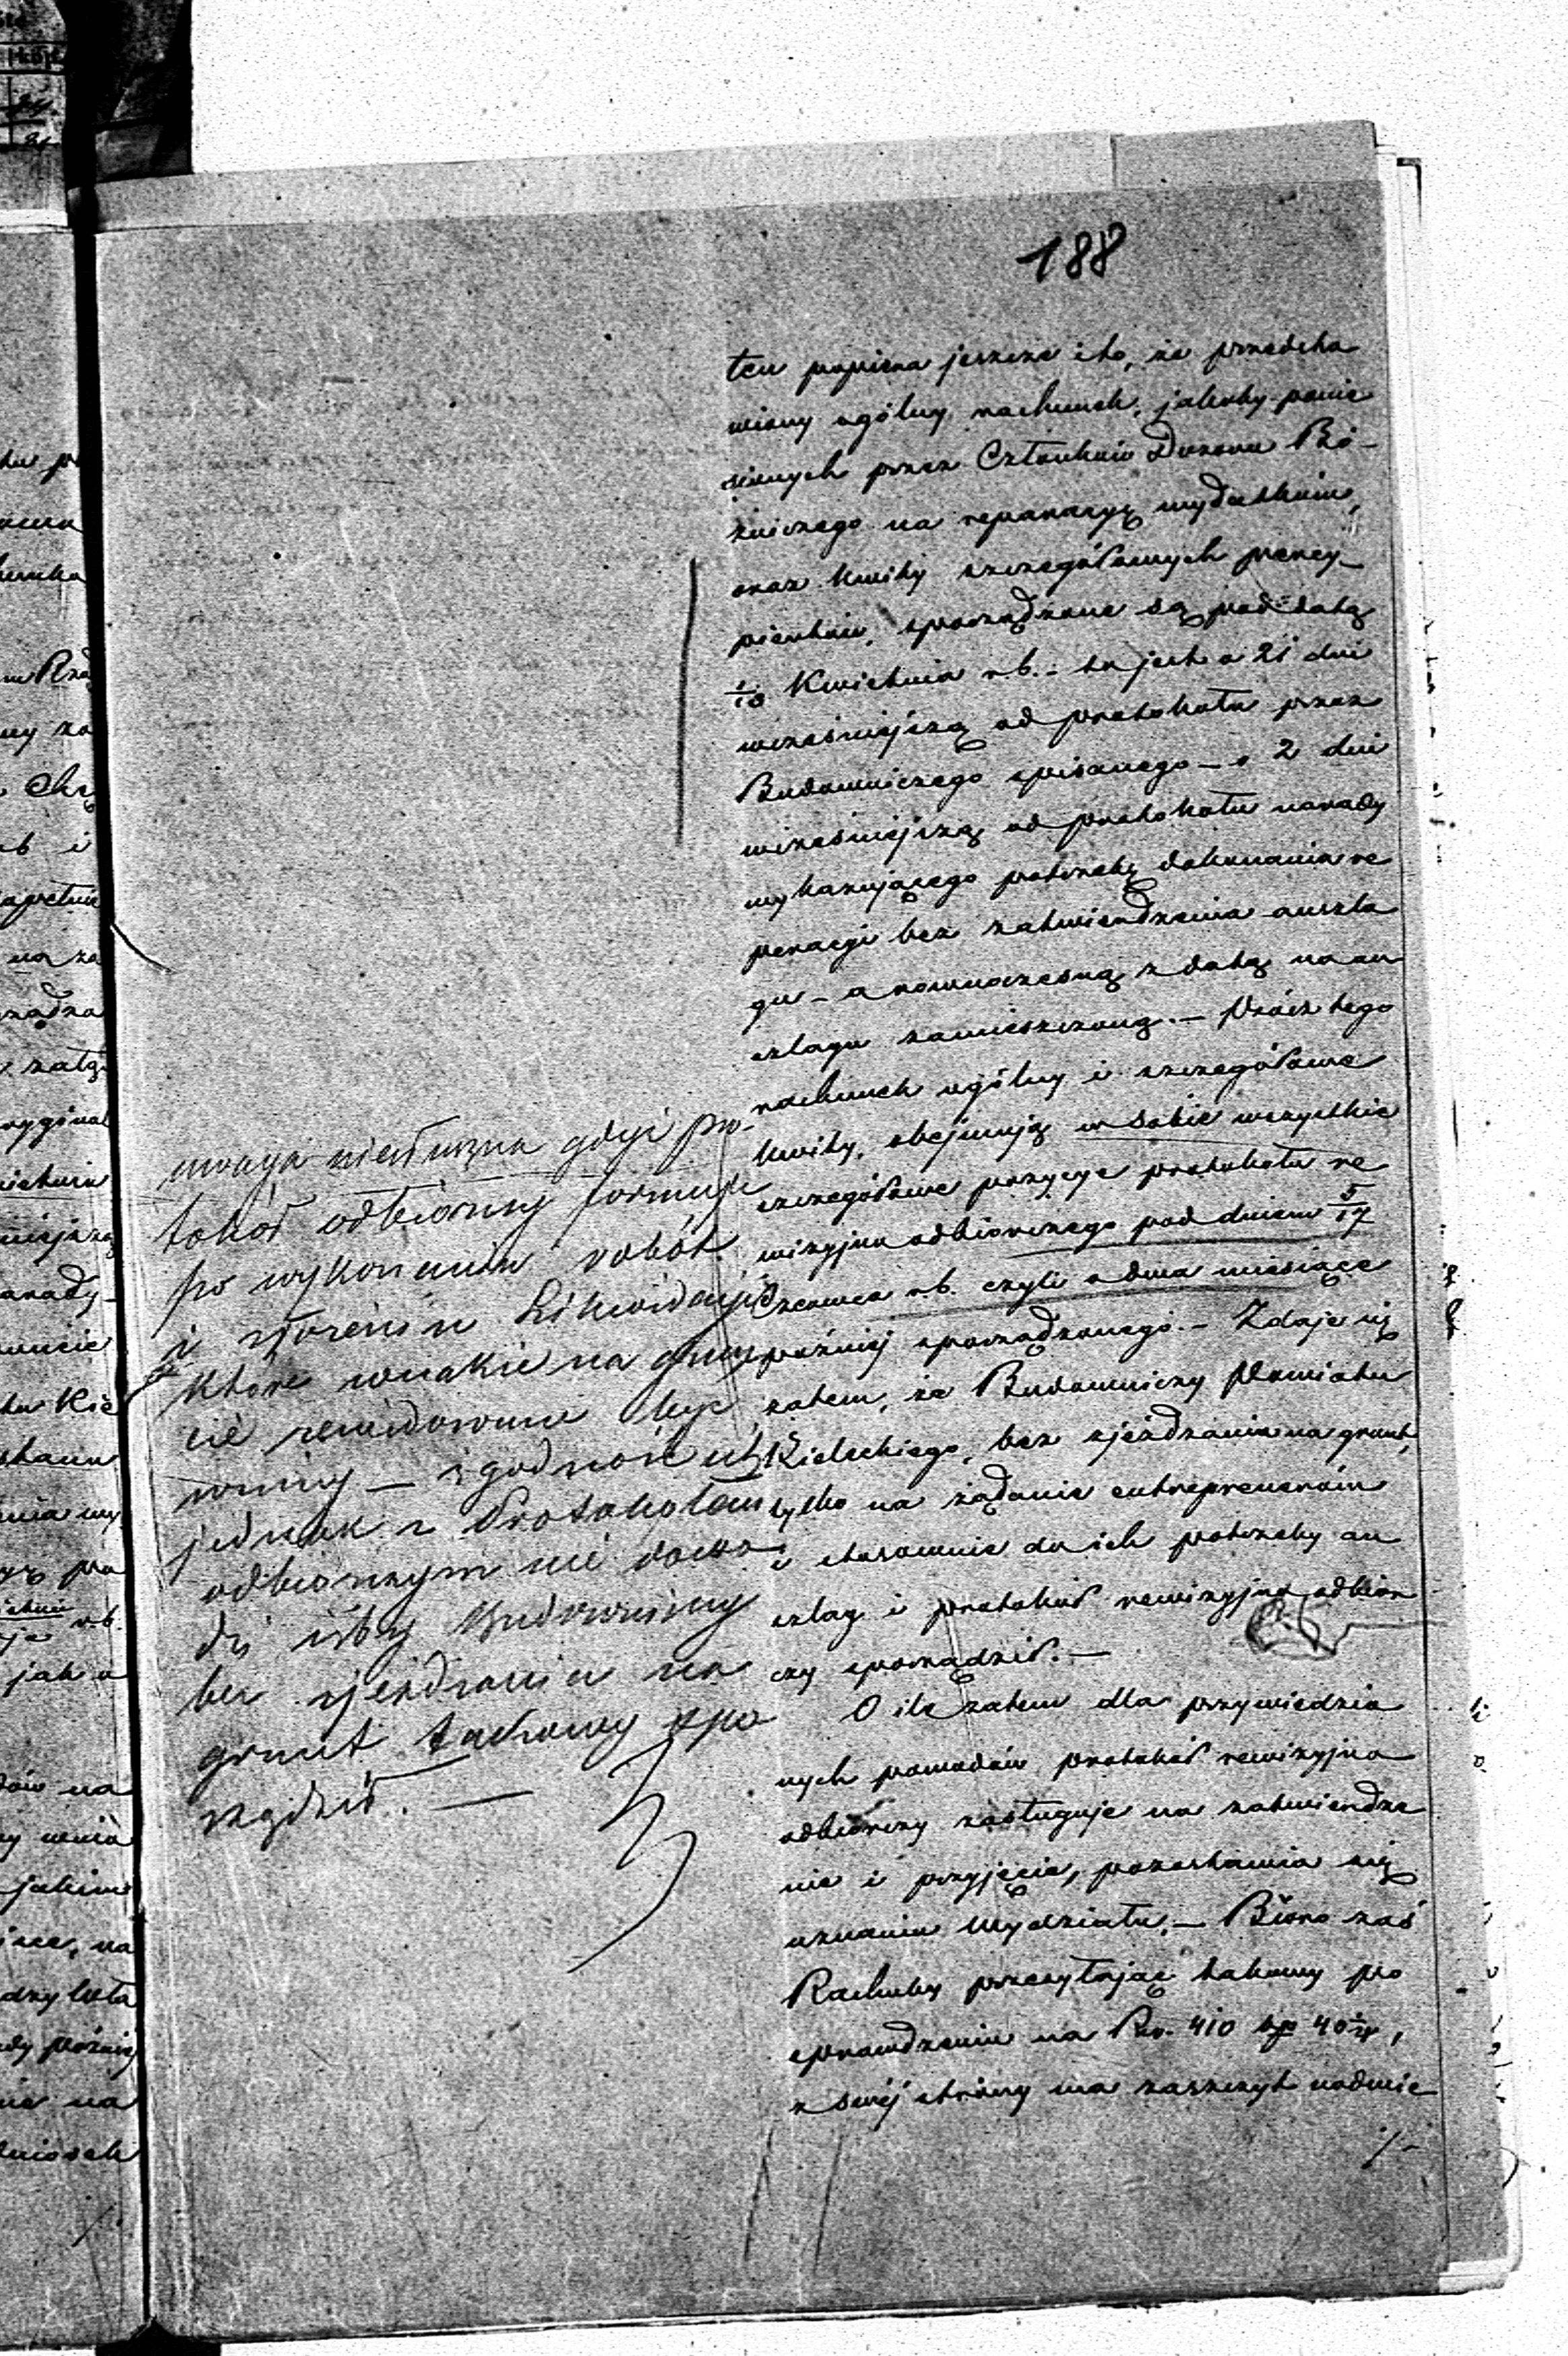 188
ten popiera jeszcze i to, że przedsta
wiony ogólny rachunek, jakoby ponie
sionych przez Członków Dozoru Bó-
żniczego na reparacyę wydatków,
oraz kwity szczegółowych percy-
pientów, sporządzone są pod datą
1/13 Kwietnia r.b. - to jest o 21 dni
wcześniejszą od protokołu przez
Budowniczego spisanego - o 2 dni
wcześniejszą od protokołu narady
wykazującego potrzebę dokonania re
peracyi bez zatwierdzenia anszla
gu - a równoczesną z datą na an
szlagu zamieszczoną. - Prócz tego
rachunek ogólny i szczegółowe
kwity, obejmują w sobie wszystkie
szczegółowe pozycye protokołu re
wizyjno odbiorczego pod dniem 5/17
Czerwca r.b. czyli o dwa miesiące
później sporządzonego. - Zdaje się
zatem, że Budowniczy Powiatu
Kieleckiego, bez zjeżdżania na grunt,
tylko na żądanie entreprenerów
i stosownie do ich potrzeby an
szlag i protokół rewizyjno odbior
czy sporządził. -
O ile zatem dla przywiedzio
nych powodów protokół rewizyjno
odbiorczy zasługuje na zatwierdze
nie i przyjęcie, pozostawia się
uznaniu Wydziału. - Bióro zaś
Rachuby przesyłając takowy po
sprawdzeniu na Rs. 410 kop 40½,
z swéj strony ma zaszczyt nadmie
./-
uwaga niesłuszna gdyż pro-
tokół odbiorczy formuje
po wykonaniu robót
i złożeniu Likwidacyi
które wszakże na grun
cie rewidowane być
winny - zgodność ich
jednak z Protokołem
odbiorczym nie dowo
dzi iżby Budowniczy
bez zjeżdżania na
grunt takowy spo
rządził. -